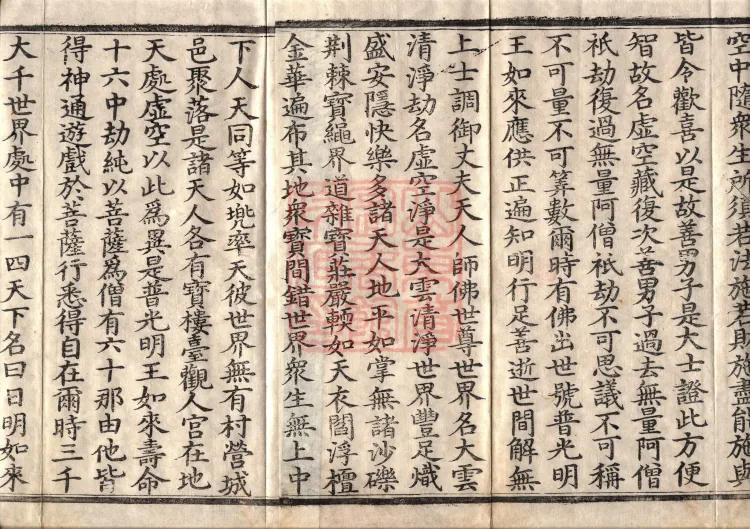 空中隨衆生所須若法施若財施盡能施與
皆令歡喜以是故善男子是大士證此方便
智故名虛空藏復次善男子過去無量阿僧
祇劫復過無量阿僧祇劫不可思議不可稱
不可量不可筭數爾時有佛出世號普光明
王如來應供正遍知明行足善逝世間解無
上士調御丈夫天人師佛世尊世界名大雲
清淨劫名虛空淨是大雲清淨世界豐足熾
盛安隱快樂多諸天人地平如掌無諸沙礫
荆棘寶繩界道雜寶莊嚴輭如天衣閻浮檀
金華遍布其地衆寶間錯世界衆生無上中
下人天同等如兜率天彼世界無有村營城
邑聚落是諸天人各有寶樓臺觀人宮在地
天處虛空以此爲異是普光明王如來壽命
十六中劫純以菩薩爲僧有六十那由他皆
得神通遊戲於菩薩行悉得自在爾時三千
大千世界處中有一四天下名曰日明如來